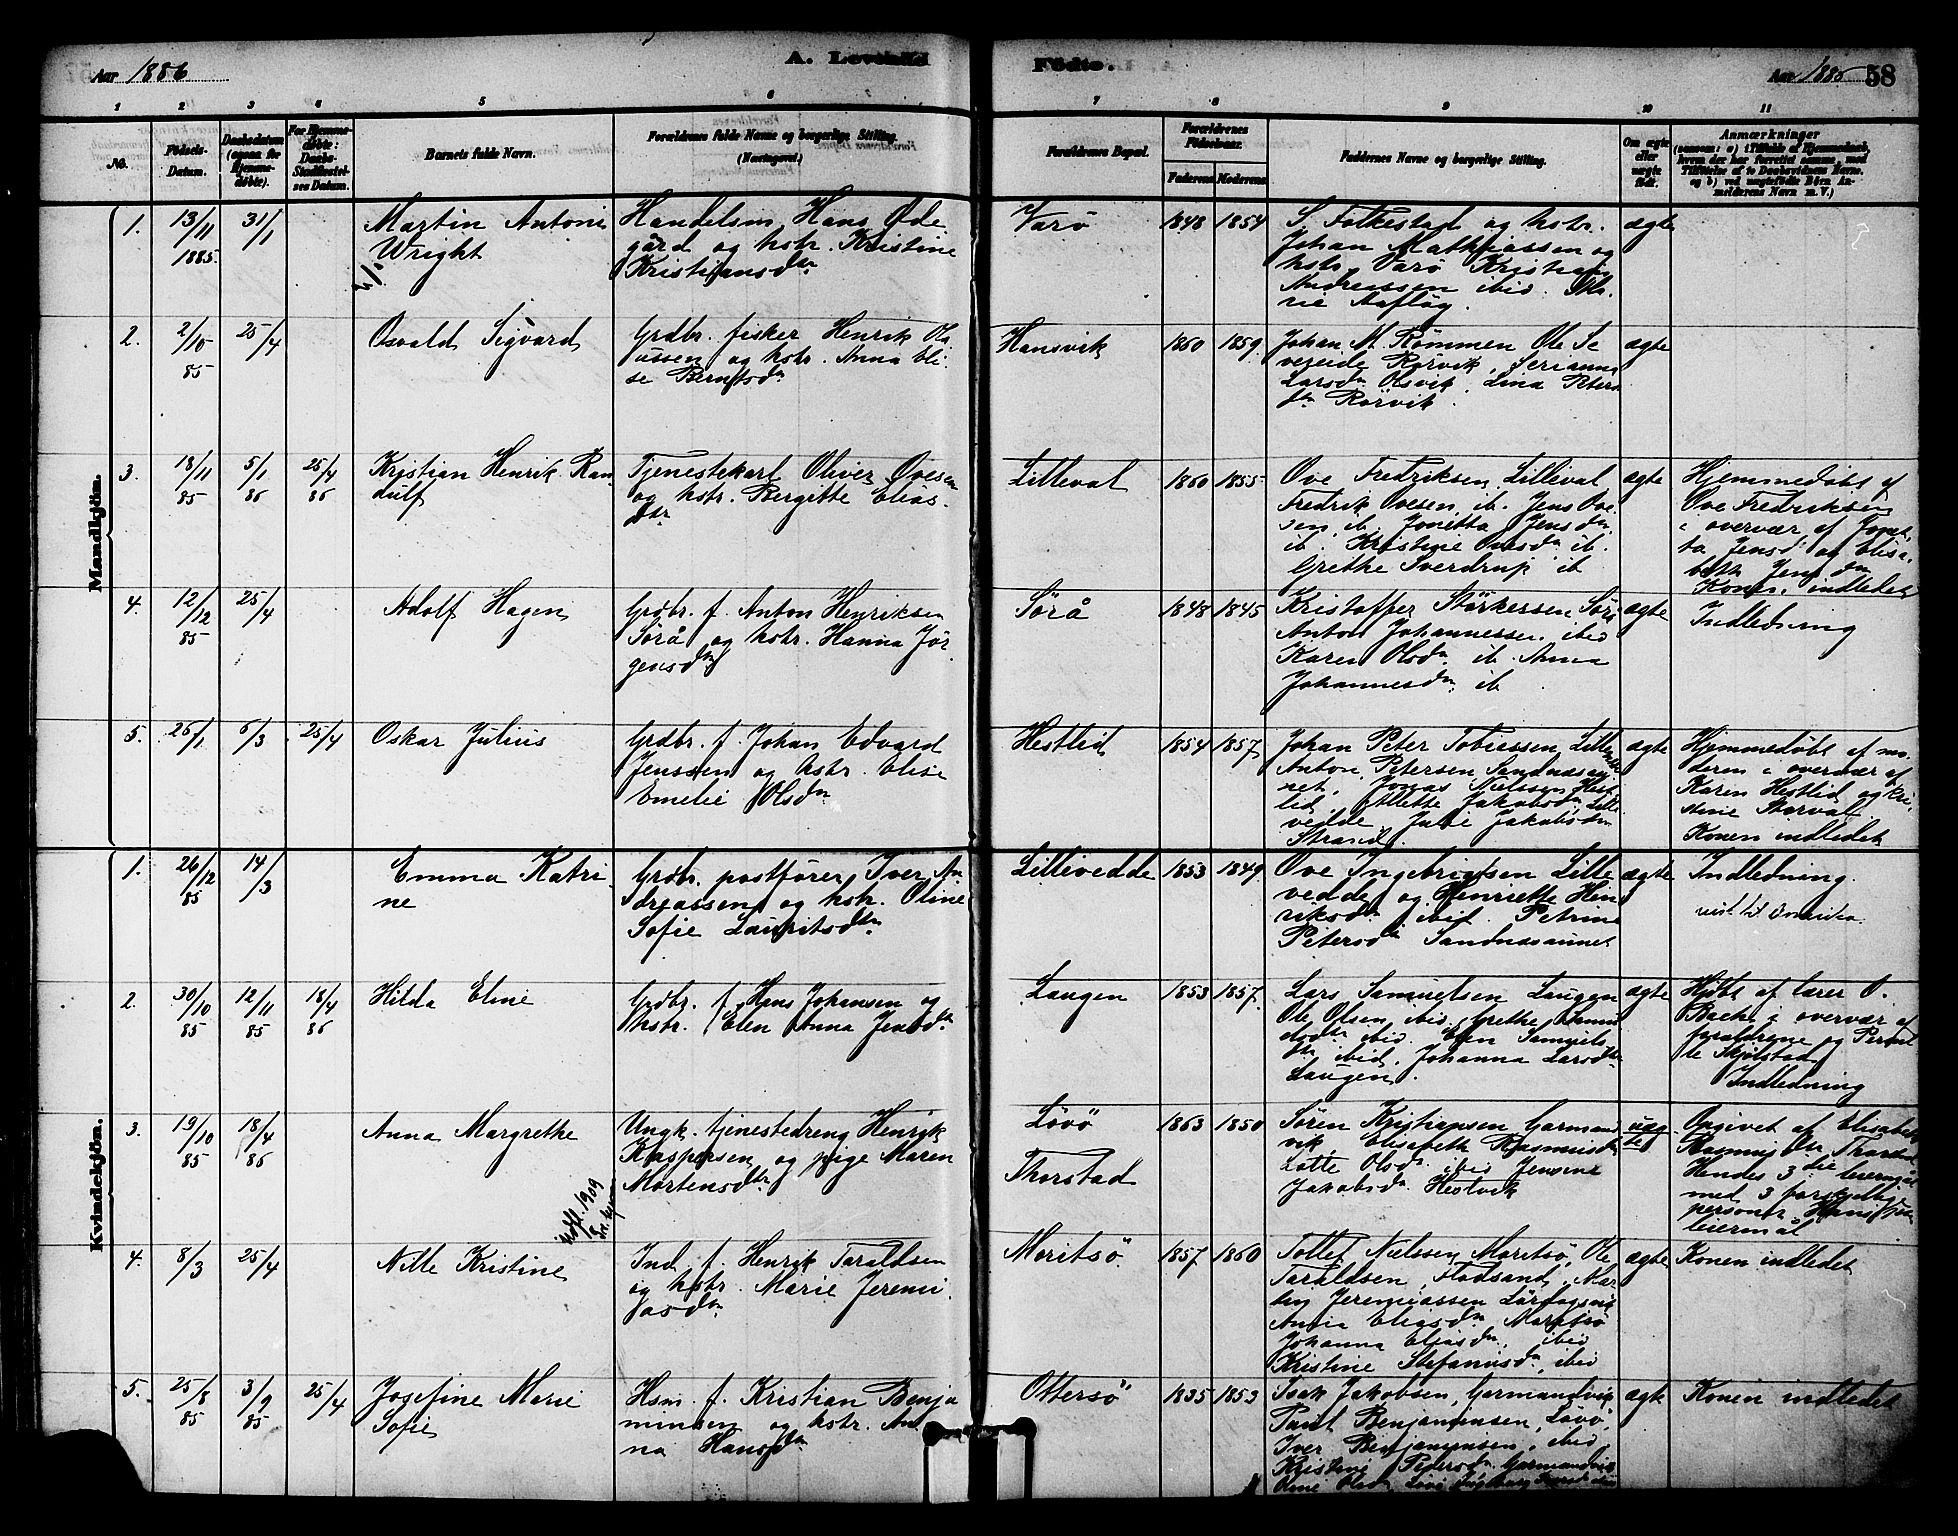 Aar 1886
A. Levende Födte.
Aar 1886 58
1 2 3 4 5 6 7 8 9 10 11
No.
Födsels-Datum.
Daabsdatum (ogsaa for Hjemmedöbte).
For Hjemmedöbte: Daabs-Stadfæstelses Datum.
Barnets fulde Navn.
Forældrenes fulde Navne og borgerlige Stilling.
Forældrenes Bopæl.
Forældrenes Födselsaar.
Faderens Moderens
Faddernes Navne og borgerlige Stilling.
Om ægte eller uægte född.
Anmærkninger
Mandkjön.
1. 13/11 1885. 31/1
Martin Antoni
Wright
Handelsm. Hans Øde
gård og hstr. Kristine
Kristiansdtr
Varö 1848 1854
S. Folkestad og hstr.
Johan Mathiassen og
hstr. Varö Kristian
Andreassen ibid.
ægte
2. 2/10 85 25/4
Osvald Sigvard
Grdbr. fisker Henrik Ol
ussen og hstr. Anna Eli
se Berntsdtr
Hansvik 1860 1859
Johan M. Römmen Ole Se
Rörvik, Serianna
Larsdtr Olsvik, Lina Peters
dtr Rörvik.
ægte
3. 18/11 85 5/1 86 25/4 86
Kristian Henrik Ran
dulf
Tjenestekarl Oliver Ovesen
og hstr. Bergitte Elias
dtr
Lilleval 1860 1855
Ove Fredriksen Lilleval
Fredrik Ovesen ib. Jens Ove
sen ib. Jonetta Jensdtr
ib. Kristine Ovesdtr ib.
Grethe Sverdrup ib
ægte
Hjemmedöbt af
Ove Fredriksen
i overvær af Jonet
ta Jensd. og Elisa
beth Jensdtr
Konen indledet
4. 12/12 85 25/4
Adolf Hagen
Grdbr. f. Anton Henriksen
Sörå og hstr. Hanna Jör
gensdtr
Sörå 1848 1845
Kristoffer Störkersen Sörå
Anton Johannessen ibid
Karen Olsdtr ib. Anna
Johannesdtr ib
ægte
Indledning
5. 26/1 6/3 25/4
Oskar Julius
Grdbr. f. Johan Edvard
Jenssen og hstr. Elise
Emelie Olsdtr
Hestlid 1854 1857
Johan Peter Tobiessen Lille
Anton Petersen Sandnæsau
net, Jonas Nielssen Hest
lid, Alette Jakobsdtr Lille
vedde Julie Jakobsdtr
Strand.
ægte
Hjemmedöbt af mo
deren i overvær af
Karen Hestlid og Kri
stine Storval
Konen indledet
Kvindekjön.
1. 26/12 85 14/3
Emma Katri
ne
Grdbr. postförer Iver An
dreassen og hstr. Oline
Sofie Lauritsdtr
Lillevedde 1853 1849
Ove Ingebrigtsen Lille
vedde og Henriette Hen
riksdtr ibid. Petrine
Petersdtr Sandnæsaunet
ægte
Indledning.
2. 30/10 85 12/11 85 18/4 86
Hilda Eline
Grdbr. f. Hans Johansen og
hstr. Elen Anna Jensdtr
Laugen 1853 1857
Lars Samuelsen Laugen
Ole Olsen ibid, Grethe Samu
elsdtr ibid. Elen Samuels
dtr ibid, Johanna Larsdtr
Laugen.
ægte
Hjdbt af lærer O.
Bache i overvær af
forældrene og Pernil
le Skjelstad
Indledning
3. 19/10 85 18/4 86
Anna Margrethe
Ungk. tjenestedreng Henrik
Kaspersen og pige Maren
Mortensdtr
Lövö
Thorstad
1863 1850
Sören Kristiansen Garmand
vik Elisabeth Rasmusdtr
Lotte Olsdtr ibid Jensine
Jakobsdtr Hestvik
uæg
te
Opgivet af Elisabeth
Rasmusdtr Thorstad
Hendes 3die leiermål
med 3 forskjellige
personer Hans
leiermål
4. 8/3 25/4
Nille Kristine
Ind. f. Henrik Taraldsen
og hstr. Marie Jeremi
asdtr
Moritsö 1857 1860
Tollef Nielssen Moritsö, Ole
Taraldsen, Flodsand, Mar
Jeremiassen
Anna Eliasdtr Moritsö
Johanna Eliasdtr, ibid
Kristine Stefanusdtr, ibid
ægte
Konen indledet
5. 25/8 85 3/9 85 25/4
Josefine Marie
Sofie
Hsm. f. Kristian Benja
minsen og hstr. An
na Hansdtr
Ottersö 1835 1853
Isak Jakobsen, Garmandvik
Paul Benjaminsen, Lövö
Iver Benjaminsen, ibid
Kristine Pedersdtr Garmandvik
ægte
Konen indledet